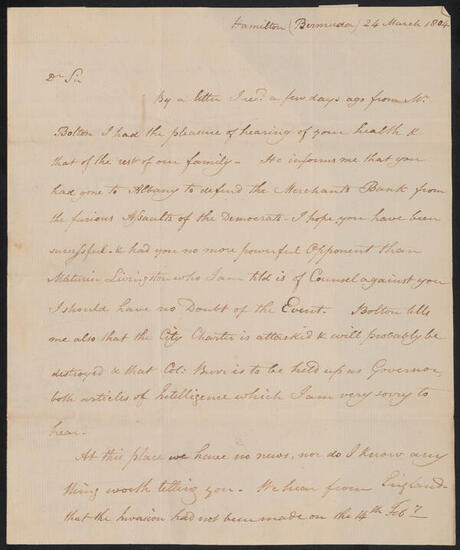 Hamilton (Bermuda) 24 March 1804
Dr Sir
By a letter I recd a few days ago from Mr.
Bolton I had the pleasure of hearing of your health &
that of the rest of our family - He informs me that you
had gone to Albany to defend the Merchants Bank from
the furious Assaults of the Democrats. I hope you have been
successful & had you no more powerful Opponent than
Maturin Livingston who I am told is of Counsel against you
I should have no Doubt of the Event. Bolton tells
me also that the City Charter is attacked & will probably be
destroyed & that Col: Burr is to be held up as Governor,
both articles of Intelligence which I am very sorry to
hear.
At this place we have no news, nor do I know any
thing worth telling you - We hear from England
that the Invasion had not been made on the 14th Feby